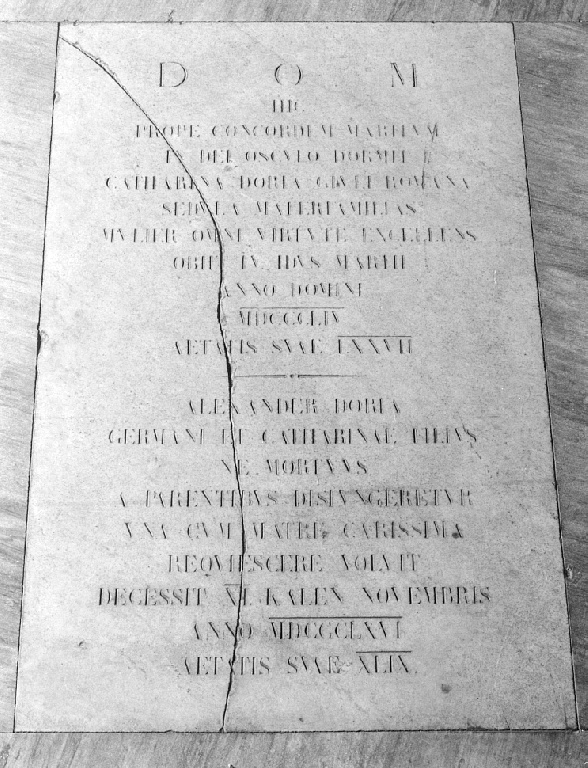 D O M
HIC
PROPE CONCORDEM MARITVM
IN DEI OSCVLO DORMIT
CATHARINA DORIA ROMANA
SEDVLA MATERFAMILIAS
MVLIER OMNI VIRTVTE EXCELLENS
OBIIT IV IDVS MARTII
ANNO DOMINI
MDCCCLIV
AETATIS SVAE LXXVII
ALEXANDER DORIA
GERMANI ET CATHARINAE FILIVS
NE MORTVVS
A PARENTIBVS DISIVNGERETVR
VNA CVM MATRE CARISSIMA
REQVIESCERE VOLVIT
DECESSIT VI KALEN NOVEMBRIS
ANNO MDCCCLXVI
AETATIS SVAE XLIX